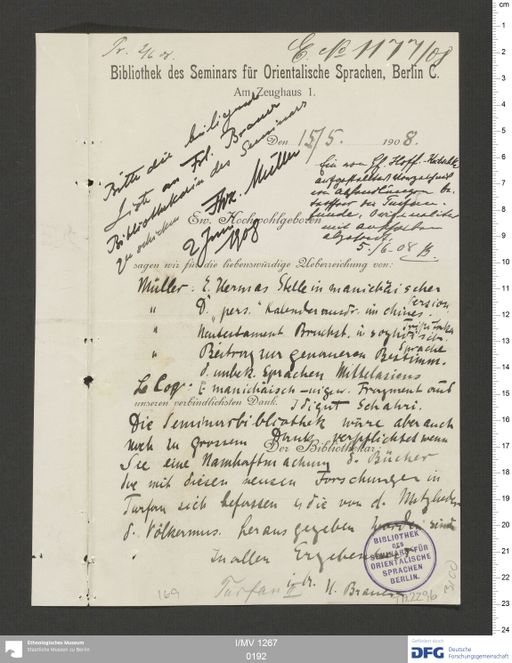 Pr. 2/6 08.
E No 1177/08
Bibliothek des Seminars für Orientalische Sprachen, Berlin C.
Am Zeughaus 1.
Den 15/5. 1908.
Bitte die beiliegende
Liste an Frl. Brauer
Bibliothekarin des Seminars
zu schicken
Frz. Müller
2 Juni 1908
Ein von
5./6. 08
Ew. Hochwohlgeboren
sagen wir für die liebenswürdige Ueberreichung von:
Müller: E. Hermas Stelle in manichäischer Version
" D. „pers." Kalenderausdr. im chines. Tripitaka
" Neutestament. Bruchst. in soghdisch. Sprache
" Beitrag zur genaueren Bestimm.
d. unbek. Sprachen Mittelasiens
Le Coq: E. manichäisch-uigur. Fragment aus
unseren verbindlichsten Dank.
Idiqut Schahri.
Die Seminarsbibliothek wäre aber auch
noch zu grossem Dank verpflichtet wenn
Der Bibliothekar
Sie eine Namhaftmachung d. Bücher
die mit diesen neuen Forschungen in
Turfan sich befassen u die von d. Mitgliedern
d. Völkermus. herausgegeben worden sind
In allen
H. Brauer
BIBLIOTHEK
DES
SEMINARS FÜR
ORIENTALISCHE
SPRACHEN
BERLIN.
169
Turfan
I/MV 1267
0192
Ethnologisches Museum
Staatliche Museen zu Berlin
Gefördert durch
DFG Deutsche
Forschungsgemeinschaft
cm
1
2
3
4
5
6
7
8
9
10
11
12
13
14
15
16
17
18
19
20
21
22
23
24